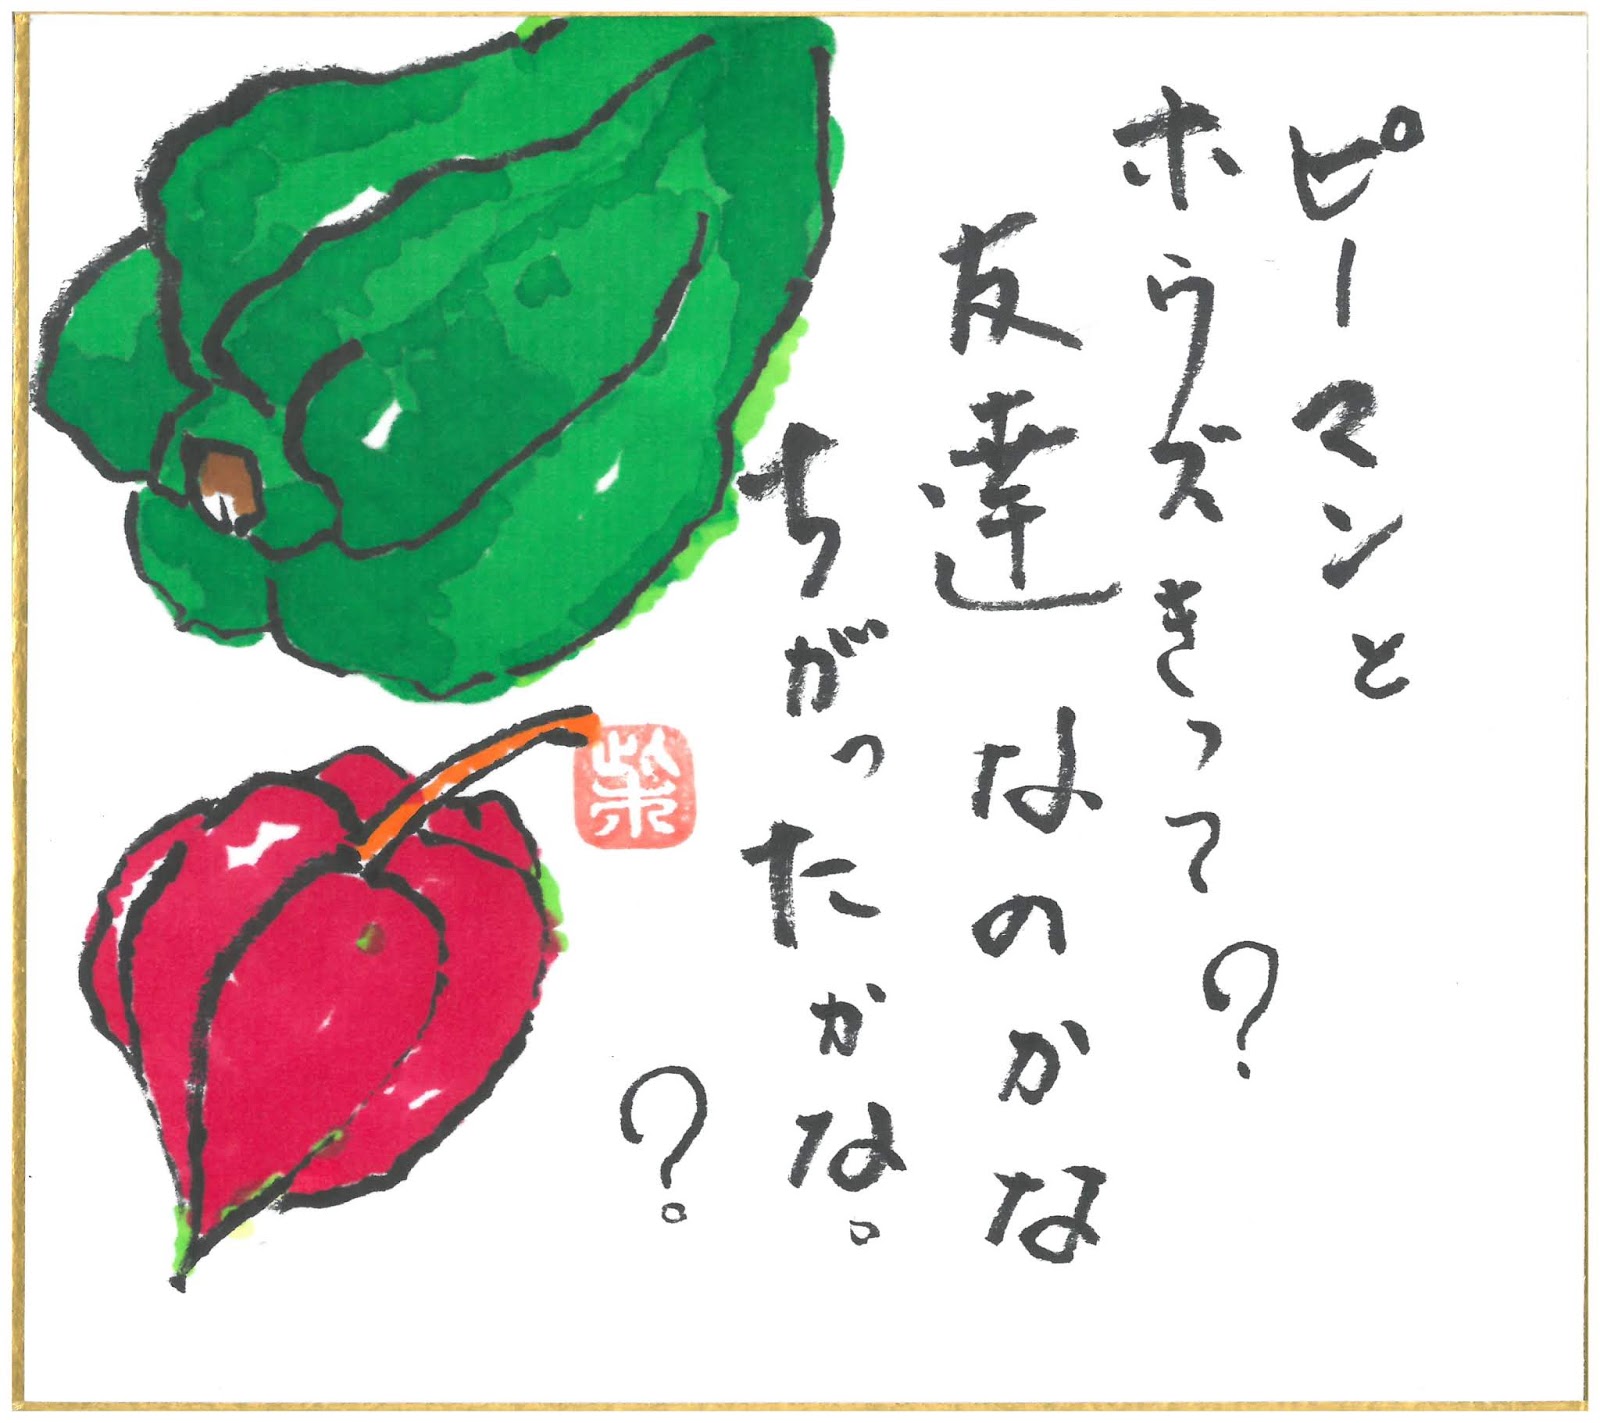 ピーマンと
ホウズきって?
友達なのかな
ちがったかな。
?
柴